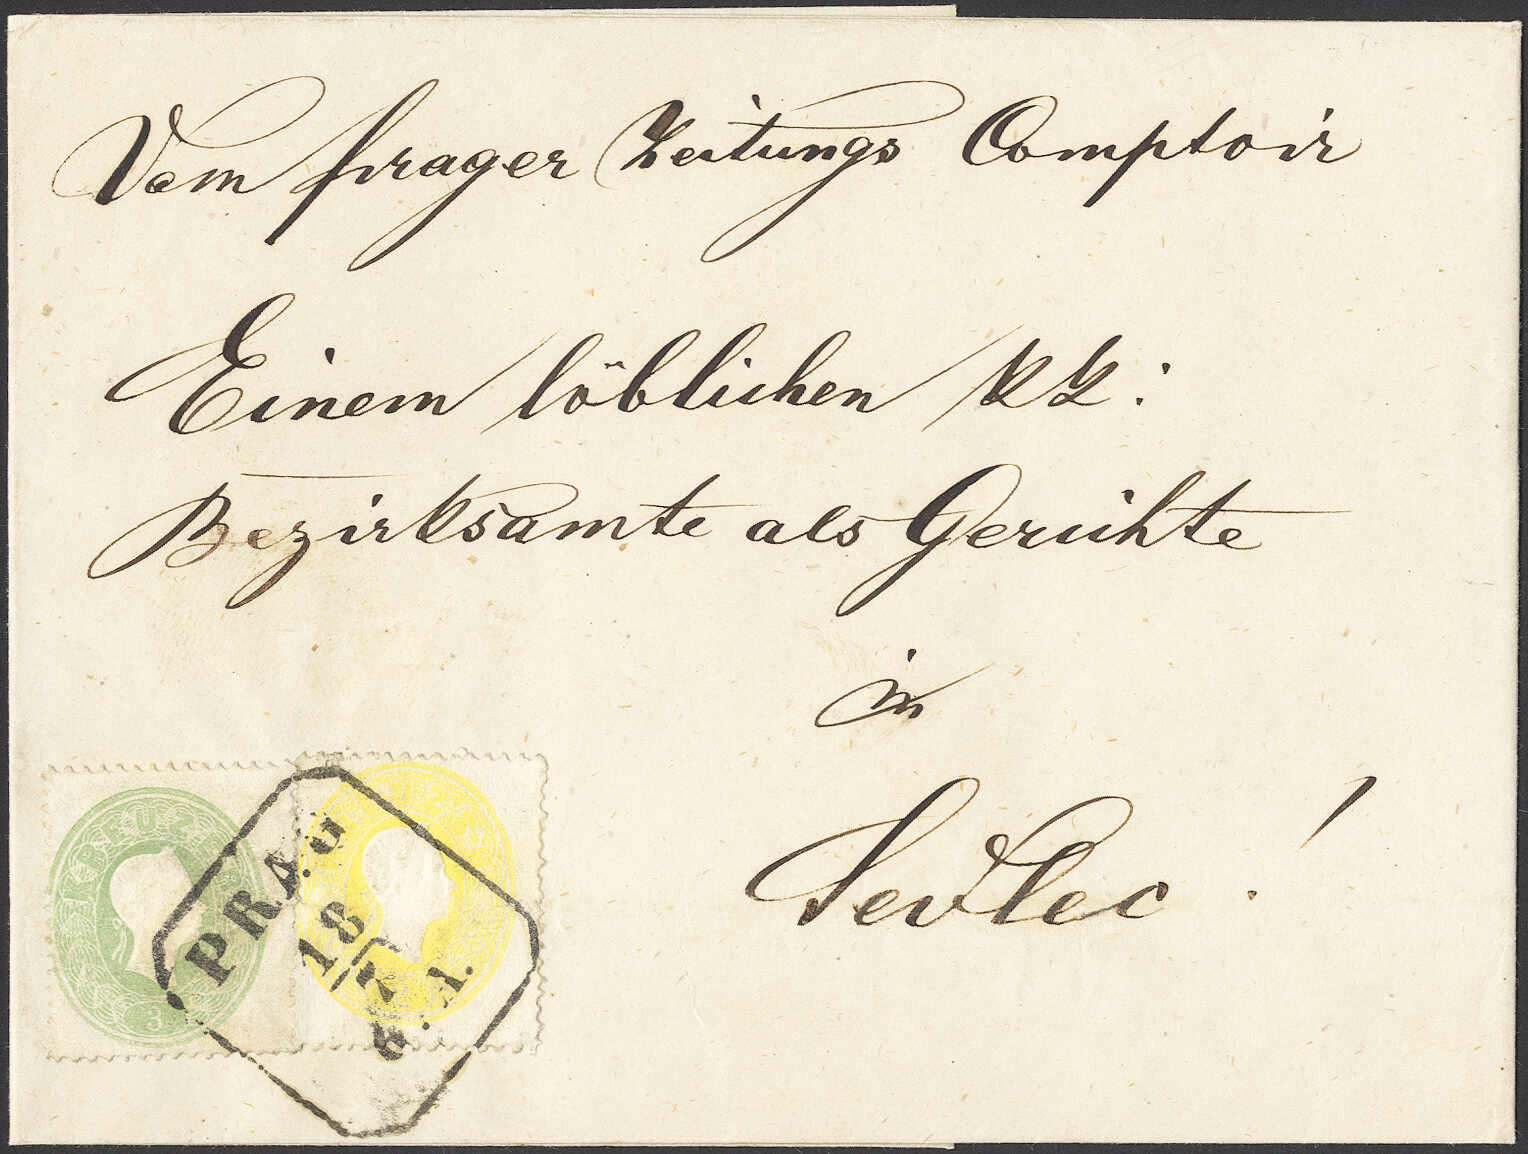 Vom prager Zeitungs Comptoir
Einem löblichen kk:
Bezirksamte als Gerichte
in
Sedlec !
KREUZER
3
PRAG
18/7
6. A.